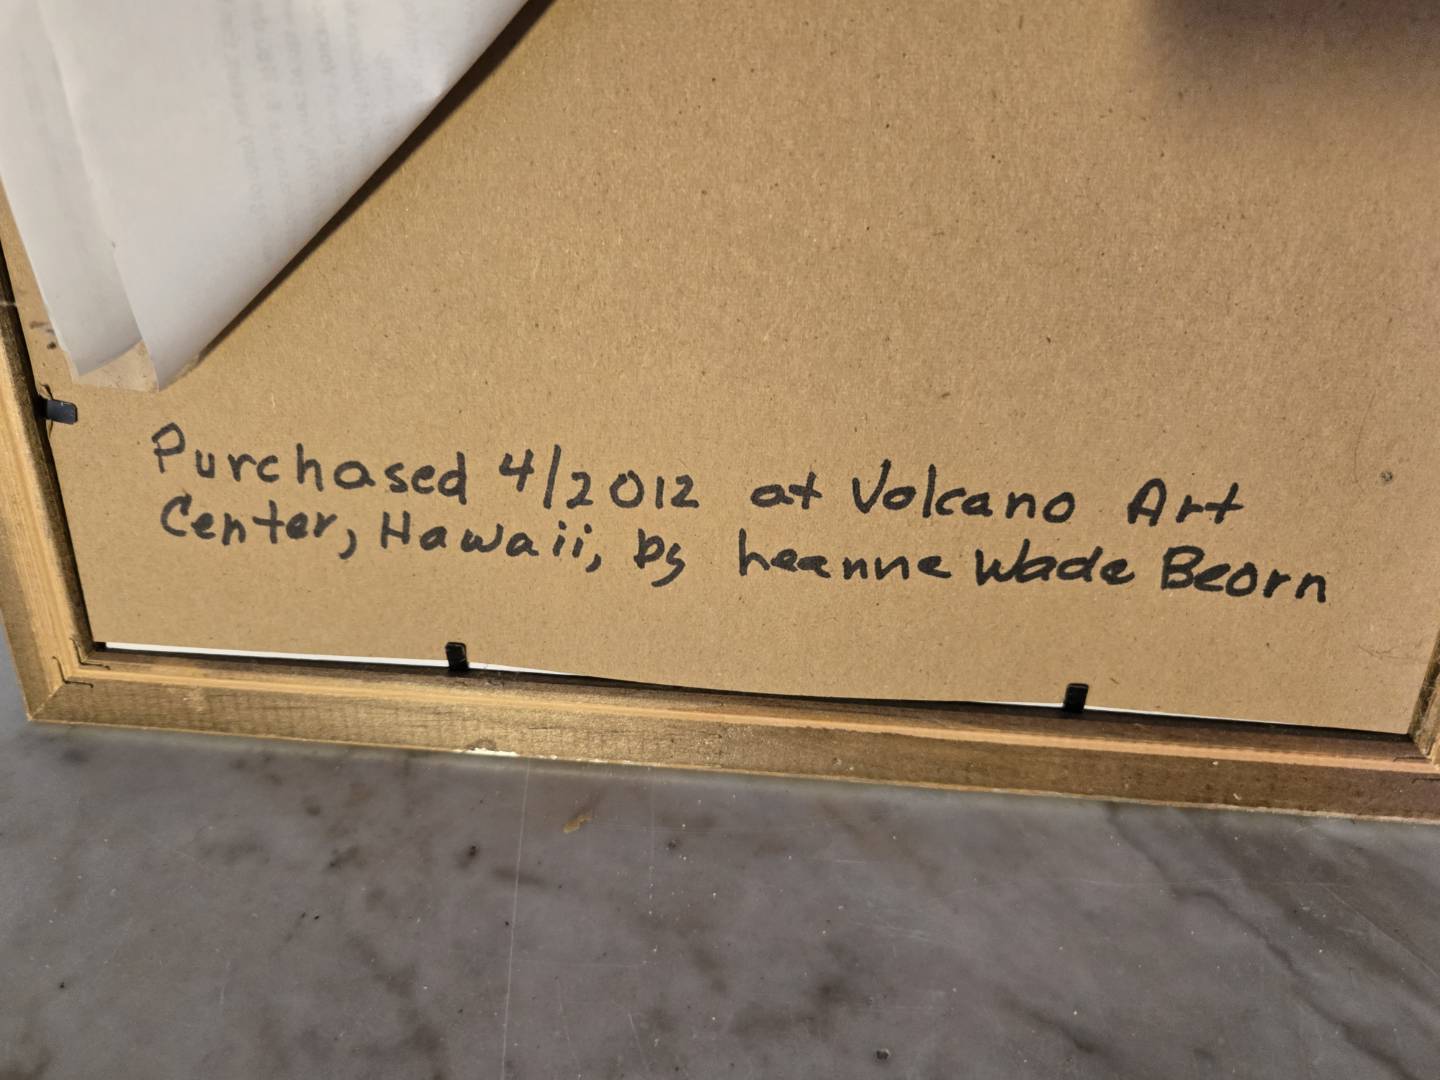 Purchased 4/2012 at Volcano Art
Center, Hawaii, by heanne Wade Beorn